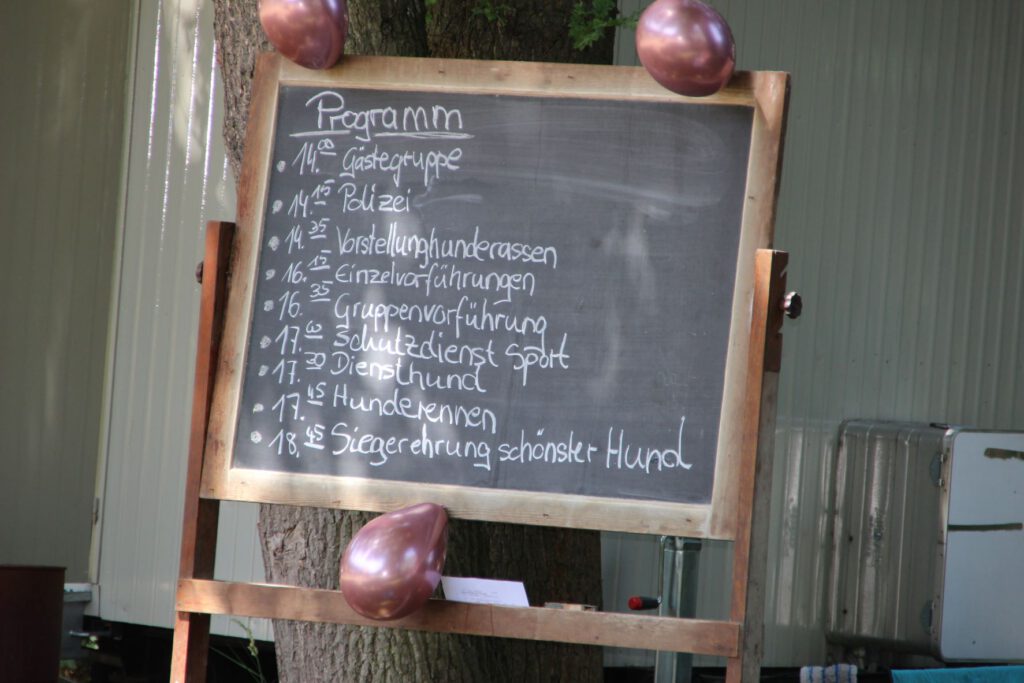 Programm
• 14.00 Gästegruppe
• 14.15 Polizei
• 14.35 Vorstellunghunderassen
• 16.15 Einzelvorführungen
• 16.35 Gruppenvorführung
• 17.00 Schutzdienst Sport
• 17.30 Diensthund
• 17.45 Hunderennen
• 18.45 Siegerehrung schönster Hund